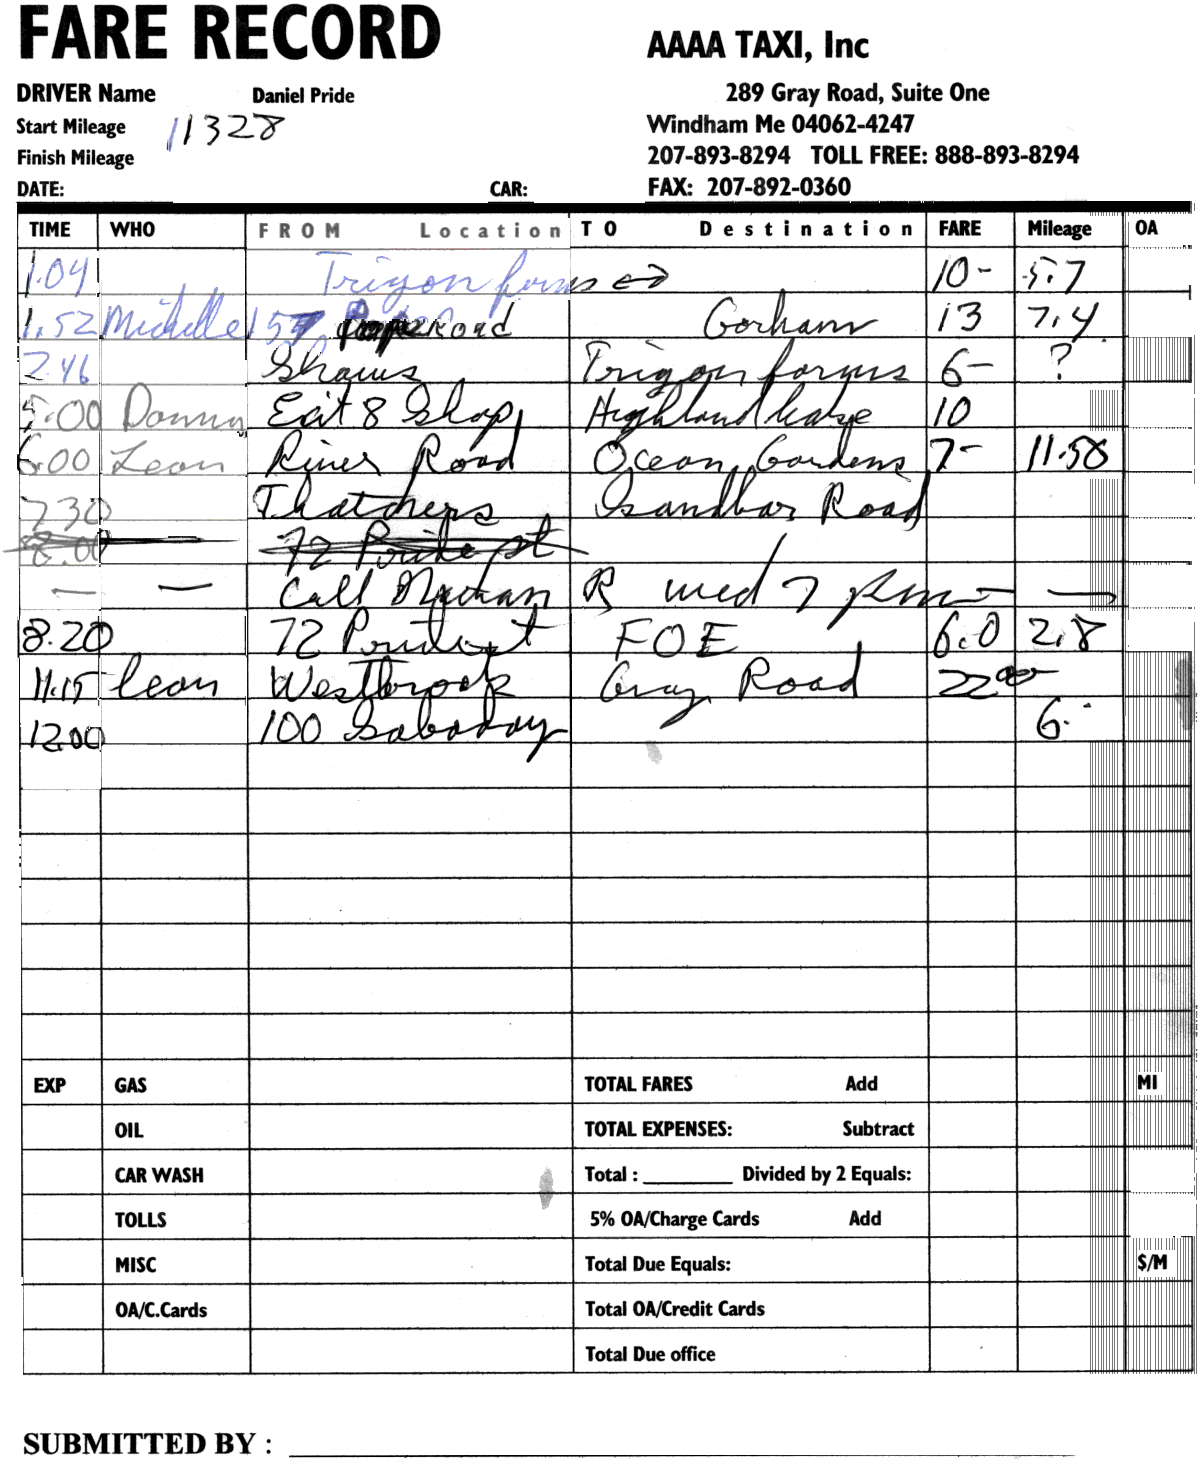 FARE RECORD
AAAA TAXI, Inc
DRIVER Name Daniel Pride
289 Gray Road, Suite One
Start Mileage 11328
Windham Me 04062-4247
Finish Mileage
207-893-8294 TOLL FREE: 888-893-8294
DATE: CAR:
FAX: 207-892-0360
TIME WHO FROM Location TO Destination FARE Mileage OA
1.04 Trigon forms 10- 5.7
1.52 Michelle 157 Road Gorham 13 7.4
2.46 Shaws Trigon forms 6- ?
5:00 Donna Exit 8 Shop Highland Lake 10
6:00 Leon River Road Ocean Gardens 7- 11.58
730 Thatchers Sandbar Road
8.00 72 Pride pt
— — Call R wed 7 pm — —
8.20 72 Pride pt FOE 6.0 2.8
11.15 Leon Westbrook Gray Road 22 00
12.00 100 Sabaday 6.
EXP GAS TOTAL FARES Add MI
OIL TOTAL EXPENSES: Subtract
CAR WASH Total : ________ Divided by 2 Equals:
TOLLS 5% OA/Charge Cards Add
MISC Total Due Equals: $/M
OA/C.Cards Total OA/Credit Cards
Total Due office
SUBMITTED BY :